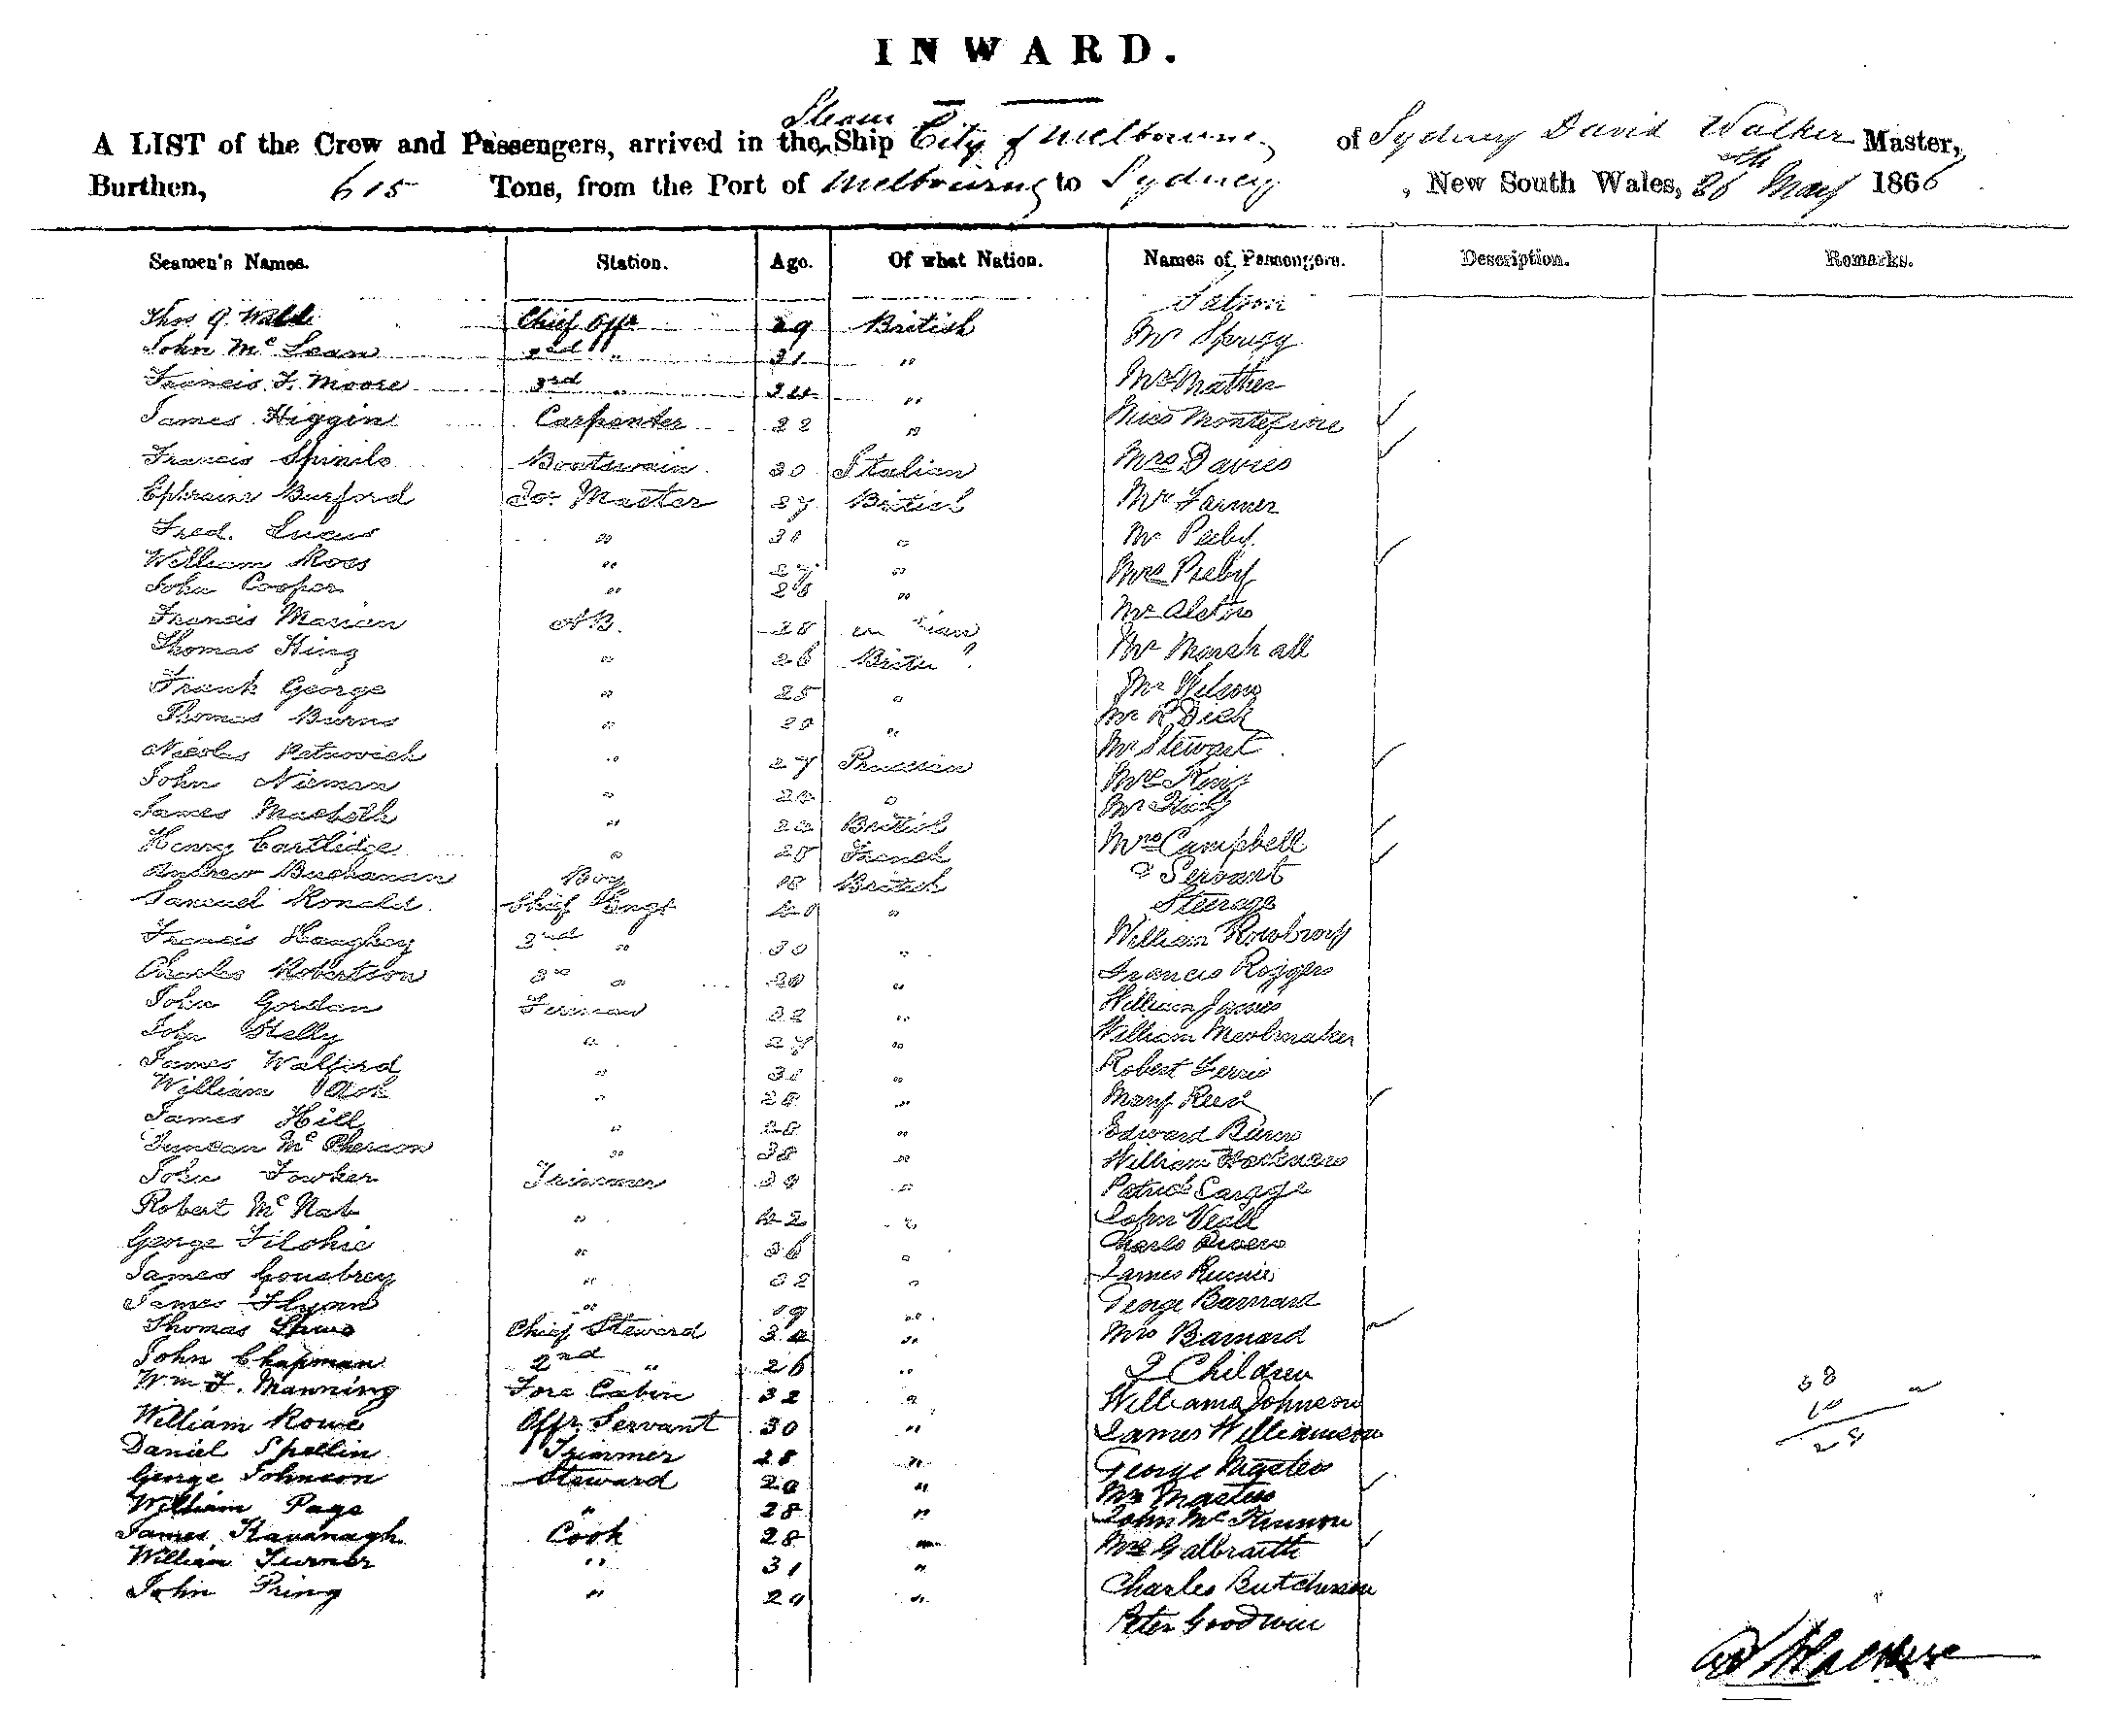 INWARD.
A LIST of the Crew and Passengers, arrived in the Steam Ship City of Melbourne of Sydney David Walker Master,
Burthen, 615 Tons, from the Port of Melbourne to Sydney, New South Wales, 26th May 1866
Seamen's Names. Station. Age. Of what Nation. Names of Passengers. Description. Remarks.
Saloon
Thos J. Chief Offr 29 British Mr Sprigg
John Mc Lean 2nd " 31 " Mr Mather
Francis F. Moore 3rd " "
James Higgin Carpenter 22 " Miss Montefiore
Francis Spinilo Boatswain 30 Italian Mrs Davies
Ephraim Burford Qr Master 27 British Mr Farmer
Fred. Lucas " "
William Ross " 27 "
John Cooper " 26 "
Francis Marian AB. 28
Thomas King " 26 Mr Marshall
Frank George " 25 " Mr Wilson
Thomas Burns " " Mr R Dick
Nicolas Petrovich " 27 Prussian Mr Stewart
John Nieman " " Mrs King
James Macbeth " British Mr King
Henry Cartlidge " 25 French Mrs Campbell
Andrew Buchanan Boy 18 British & Servant
Samuel Ronald Chief Engr 40 " Steerage
Francis Haughey 2nd " 30 " William
Charles Robertson 3rd " " Francis Roggers
John Gordan Fireman 32 " William James
John Kelly " 27 " William
James Walford " " Robert Ferrie
William " 28 " Mary Reed
James Hill " 28 " Edward Burns
Duncan Mc Pherson " 38 " William
John Fowker Trimmer " Patrick
Robert Mc Nab " 42 " John Veall
George " 36 " Charls
James " 32 " James
James Flynn " 19 " George Barnard
Thomas Chief Steward " Mrs Barnard
John Chapman 2nd " 26 " 2 Children
Wm F. Manning Fore Cabin 32 " William Johnson
William Rowe Offr. Servant 30 " James Williamson
Daniel Spellin Trimmer 28 " George Masters
George Johnson Steward " Mrs Masters
William Page " 28 " John Mc Kinnon
James Kavanagh Cook 28 " Mrs Galbraith
William Turner " 31 " Charles
John Pring " " Peter Goodwin
38
10
28